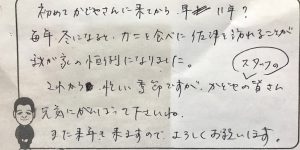 初めてかどやさんに来てから、早11年?
毎年冬になると、カニを食べに佐津を訪れることが
我が家の恒例になりました。
これから忙しい季節ですが、かどやの皆さん
スタッフの
元気にがんばって下さいね。
また来年も来ますので、よろしくお願いします。